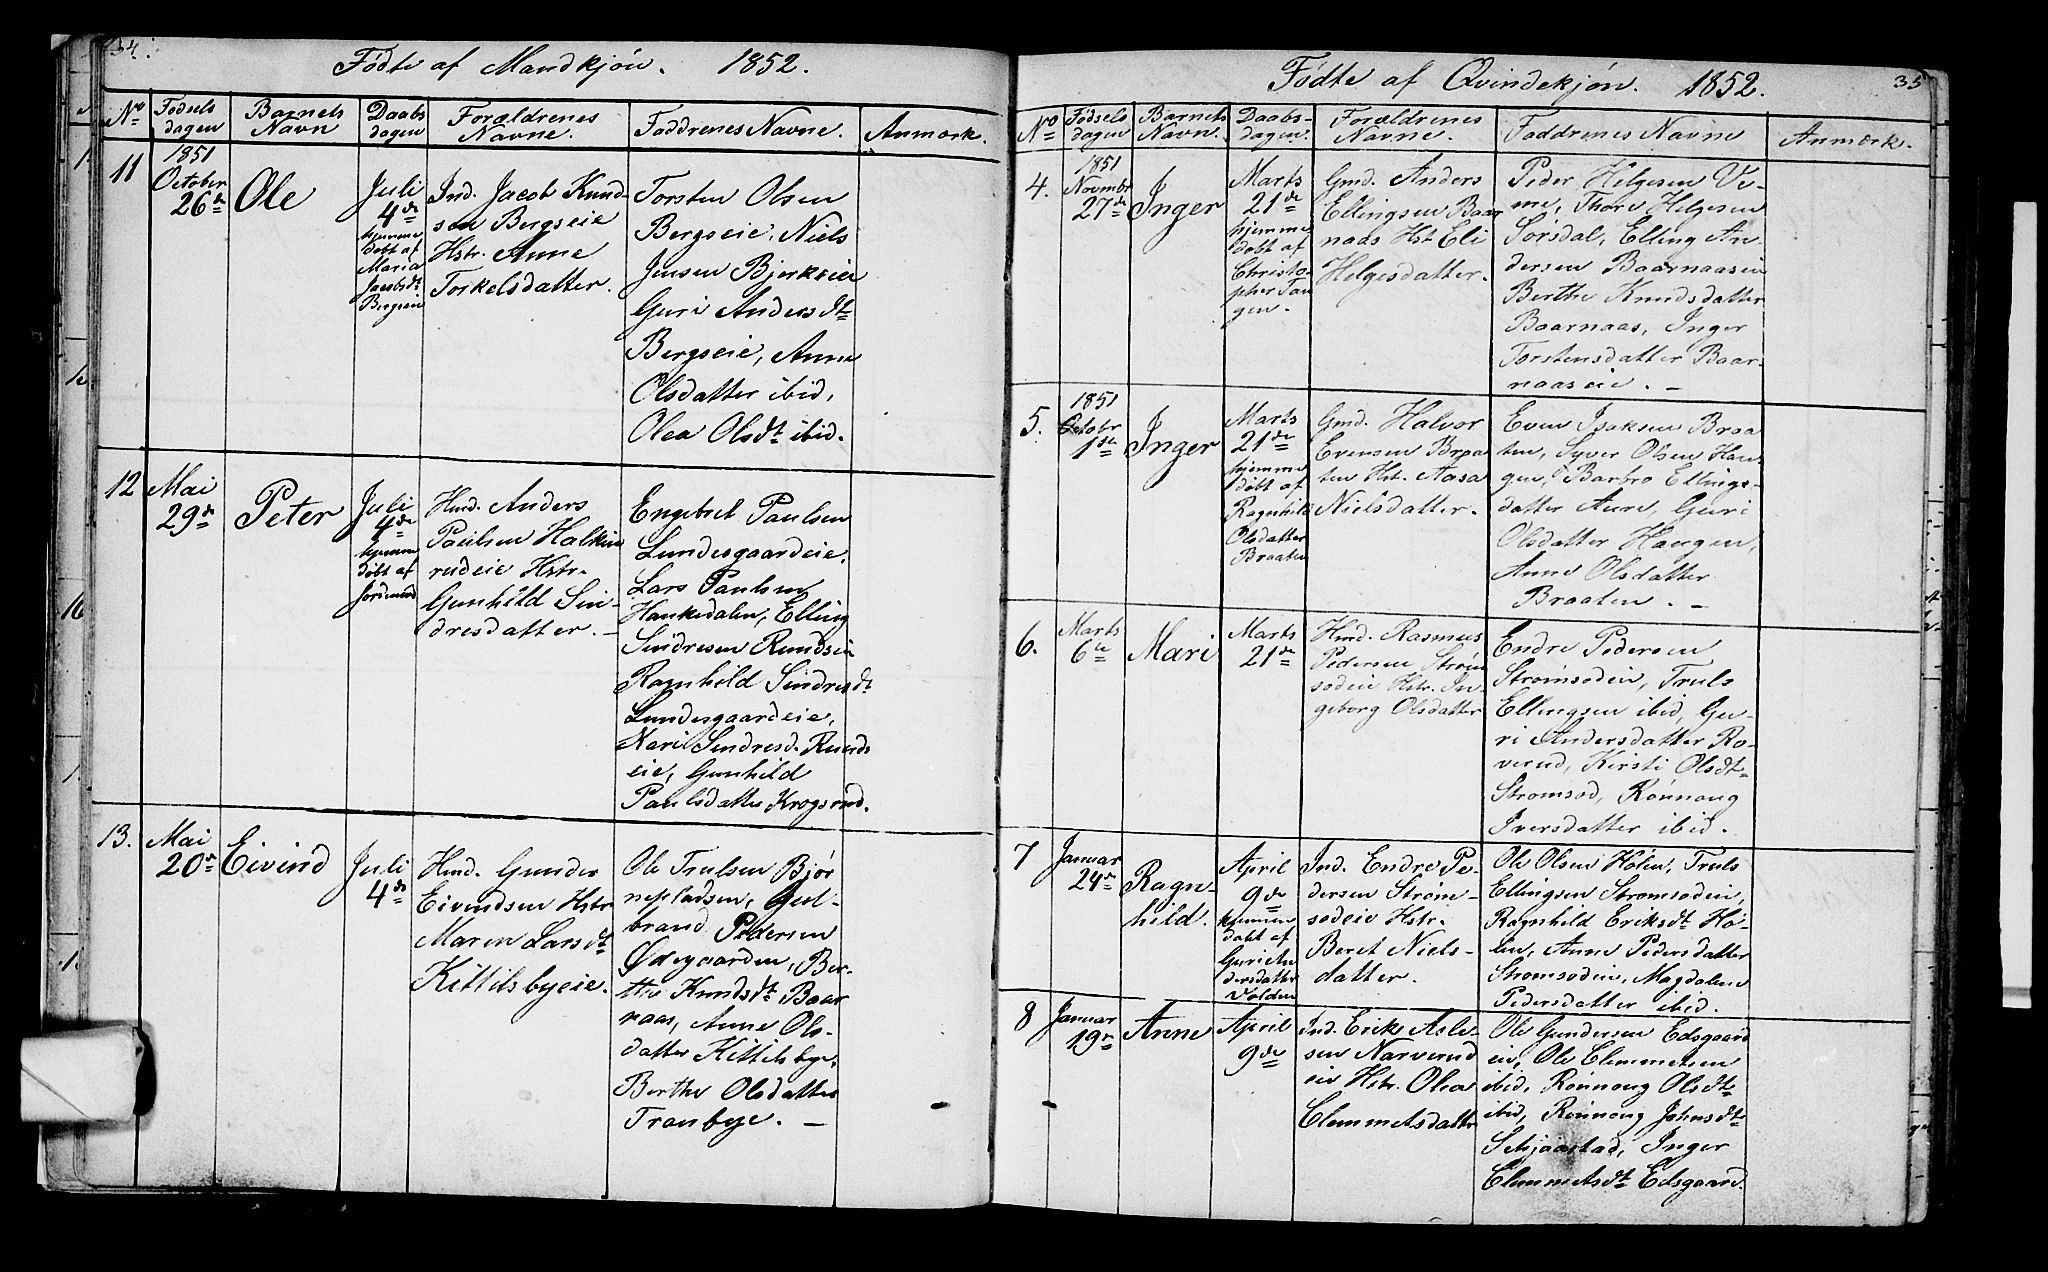 34.
Fødte af Mandkjøn. 1852.
No
Fødsels
dagen
Barnets
Navn
Daabs
dagen
Forældrenes
Navne.
Faddrenes Navne.
Anmærk.
11
1851
October
26de
Ole
Juli
4de
hjemme
døbt af
Maria
Jacobsdt
Bergseie
Ind. Jacob Knud-
sen Bergseie
Hstr. Anne
Torkelsdatter.
Torsten Olsen
Bergseie, Niels
Jensen Bjerkeeie
Guri Andersdt
Bergseie, Anne
Olsdatter ibid,
Olea Olsdt ibid.
12
Mai
29de
Peter
Juli
4de
hjemme
døbt af
Jordemod
Hmd. Anders
Paulsen Halkin
rudeie Hstr.
Gunhild Sin-
dresdatter.
Engebret Paulsen
Lundesgaardeie,
Lars Paulsen
Haukedalen, Elling
Sindresen Rundseie
Ragnhild Sindresdt
Lundesgaardeie,
Kari Sindresd. Runds
eie, Gunhild
Paulsdatter Krogsrud.
13.
Mai
20de
Eivind
Juli
4de
Hmd. Gunder
Eivindsen Hstr
Maren Larsdt
Kittilsbyeie.
Ole Trulsen Bjør
nepladsen, Gul-
brand Pedersen
Ødegaarden, Ber-
the Knudsdt Baar
naas, Anne Ols-
datter Kittilsbye,
Berthe Olsdatter
Tranbye. —
35
Fødte af Qvindekjøn. 1852.
No
Fødsels
dagen
Barnets
Navn.
Daabs-
dagen.
Forældrenes
Navne.
Faddrenes Navne
Anmærk.
4.
1851
Novmbr
27de
Inger
Marts
21de
hjemme
døbt af
Christo-
pher Tan
gen.
Gmd. Anders
Ellingsen Baar
naas Hst. Eli
Helgesdatter.
Peder Helgesen Ve-
me, Thore Helgesen
Sørsdal, Elling An-
dersen Baarnaaseie
Berthe Knudsdatter
Baarnaas, Inger
Torstensdatter Baar-
naaseie. —
5.
1851
Octobr
1de
Inger
Marts
21de
hjemme
døbt af
Ragnhild
Olsdatter
Braaten
Gmd. Halvor
Evensen Braa
ten Hst. Aasa
Nielsdatter.
Even Isaksen Braa
ten, Syver Olsen Hau-
gen, Barbro Ellings-
datter Aure, Guri
Olsdatter Haugen,
Anne Olsdatter
Braaten. —
6.
Marts
6te
Mari
Marts
21de
Hmd. Rasmus
Pedersen Strøm
sødeie Hstr. In-
geborg Olsdatter
Endre Pedersen
Strømsødeie, Truls
Ellingsen ibid, Gu-
ri Andersdatter Ro-
verud, Kirsti Olsdt
Strømsød, Rønnaug
Iversdatter ibid.
7
Januar
24de
Ragn-
hild.
April
9de
hjemme
døbt af
Guri An
dersdatter
Volden
Ind. Endre Pe-
dersen Strøm-
sødeie Hstr.
Beret Niels-
datter.
Ole Olsen Hølen, Truls
Ellingsen Strømsødeie,
Ragnhild Eriksdt Hø-
len, Anne Pedersdatter
Strømsødeie, Magdalene
Pedersdatter ibid.
8
Januar
19de
Anne
April
9de
Ind. Erik Asle-
sen Narverud
eie Hstr. Olea
Clemmetsdatter
Ole Gundersen Edsgaard
en, Ole Clemmetsen
ibid, Rønnaug Olsdt
ibid, Rønnaug Johnsdt
Setsjaastad, Inger
Clemmetsdt Edsgaard.